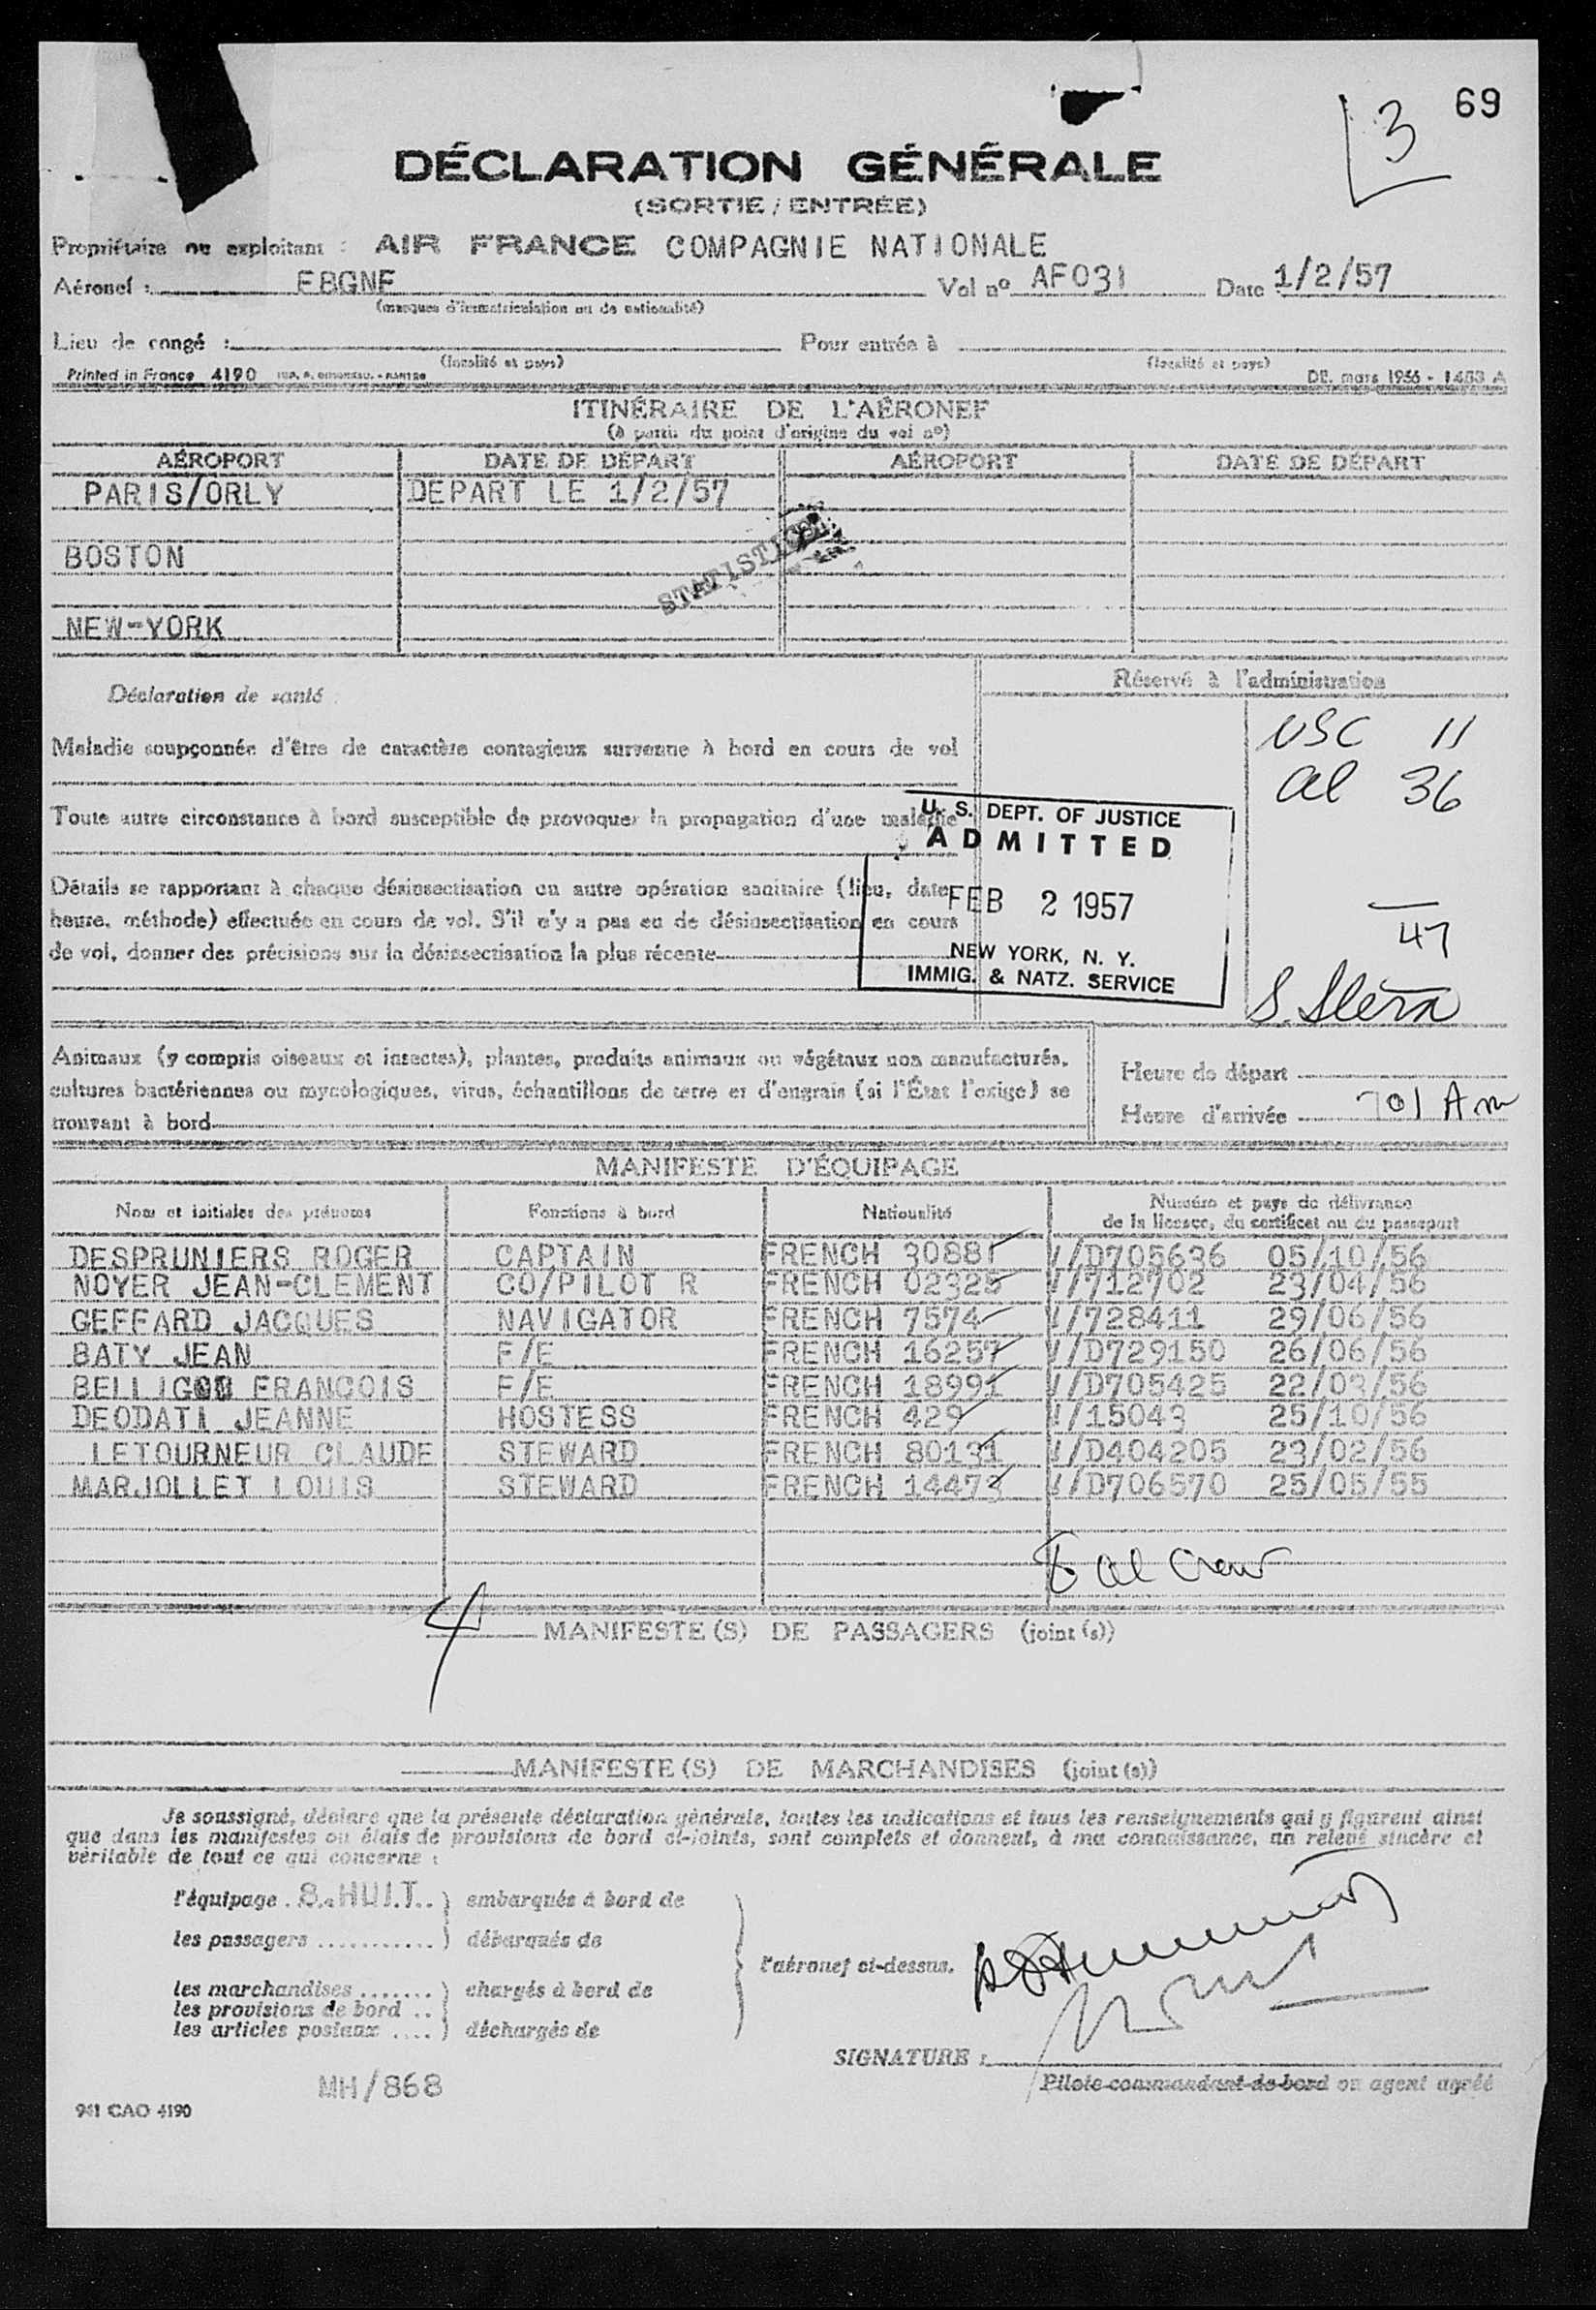 69
3
DÉCLARATION GÉNÉRALE
(SORTIE / ENTRÉE)
Propriétaire ou exploitant : AIR FRANCE COMPAGNIE NATIONALE
Aéronef : FBGNF Vol nº AF031 Date 1/2/57
(marques d'immatriculation ou de nationalité)
Lieu de congé : Pour entrée à
(localité et pays) (localité et pays)
Printed in France 4190 DE. mars 1956 - 1483 A
ITINÉRAIRE DE L'AÉRONEF
(à partir du point d'origine du vol nº)
AÉROPORT DATE DE DÉPART AÉROPORT DATE DE DÉPART
PARIS/ORLY DEPART LE 1/2/57
BOSTON
NEW-YORK
Déclaration de santé
Réservé à l'administration
USC 11
al 36
Maladie soupçonnée d'être de caractère contagieux survenue à bord en cours de vol
Toute autre circonstance à bord susceptible de provoquer la propagation d'une maladie
U. S. DEPT. OF JUSTICE
ADMITTED
FEB 2 1957
NEW YORK, N. Y.
IMMIG. & NATZ. SERVICE
47
S. Stern
Détails se rapportant à chaque désinsectisation ou autre opération sanitaire (lieu, date,
heure, méthode) effectuée en cours de vol. S'il n'y a pas eu de désinsectisation en cours
de vol, donner des précisions sur la désinsectisation la plus récente
Animaux (y compris oiseaux et insectes), plantes, produits animaux ou végétaux non manufacturés,
cultures bactériennes ou mycologiques, virus, échantillons de terre et d'engrais (si l'État l'exige) se
trouvant à bord
Heure de départ
Heure d'arrivée 701 Am
MANIFESTE D'ÉQUIPAGE
Nom et initiales des prénoms Fonctions à bord Nationalité Numéro et pays de délivrance
de la licence, du certificat ou du passeport
DESPRUNIERS ROGER CAPTAIN FRENCH 30881 V/D705636 05/10/56
NOYER JEAN-CLEMENT CO/PILOT R FRENCH 02325 V/712702 23/04/56
GEFFARD JACQUES NAVIGATOR FRENCH 7574 V/728411 29/06/56
BATY JEAN F/E FRENCH 16257 V/D729150 26/06/56
FRANCOIS F/E FRENCH 18991 V/D705425 22/03/56
DEODATI JEANNE HOSTESS FRENCH 429 V/15043 25/10/56
LETOURNEUR CLAUDE STEWARD FRENCH 80131 V/D404205 23/02/56
MARJOLLET LOUIS STEWARD FRENCH 14473 V/D706570 25/05/55
8 al Crew
4 MANIFESTE (S) DE PASSAGERS (joint (s))
MANIFESTE (S) DE MARCHANDISES (joint (s))
Je soussigné, déclare que la présente déclaration générale, toutes les indications et tous les renseignements qui y figurent ainsi
que dans les manifestes ou états de provisions de bord ci-joints, sont complets et donnent, à ma connaissance, un relevé sincère et
véritable de tout ce qui concerne :
l'équipage . 8.HUIT.. ) embarqués à bord de
les passagers ........... ) débarqués de
l'aéronef ci-dessus.
les marchandises ....... ) chargés à bord de
les provisions de bord ..
les articles postaux .... ) déchargés de
SIGNATURE :
Pilote commandant de bord ou agent agréé
MH/868
941 CAO 4190